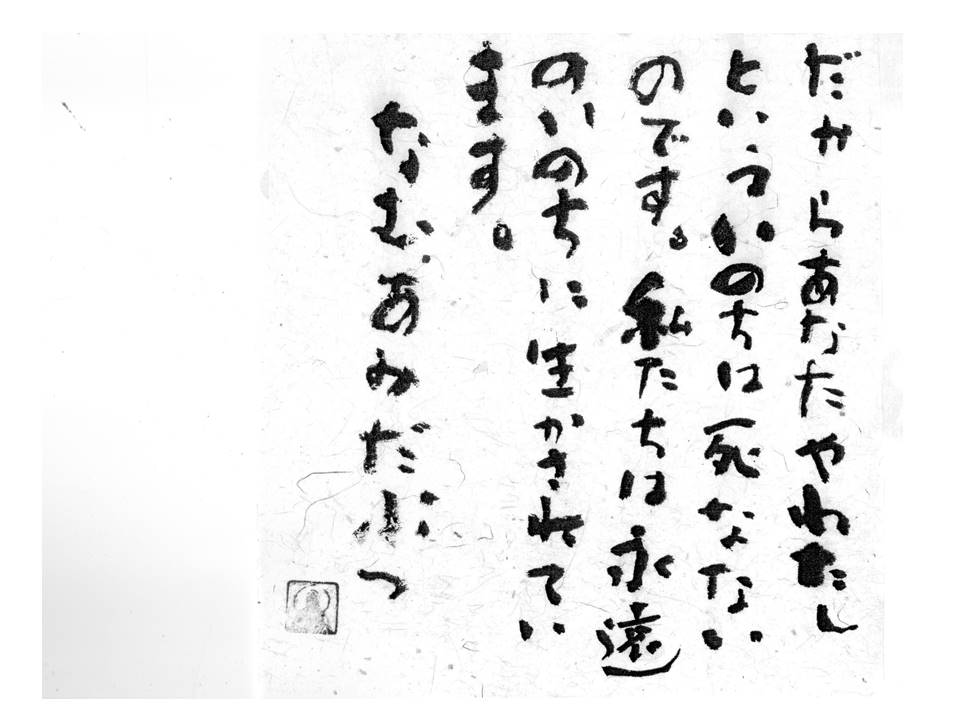 だからあなたやわたし
といういのちは死なない
のです。私たちは永遠
のいのちに生かされてい
ます。
なむあみだぶつ